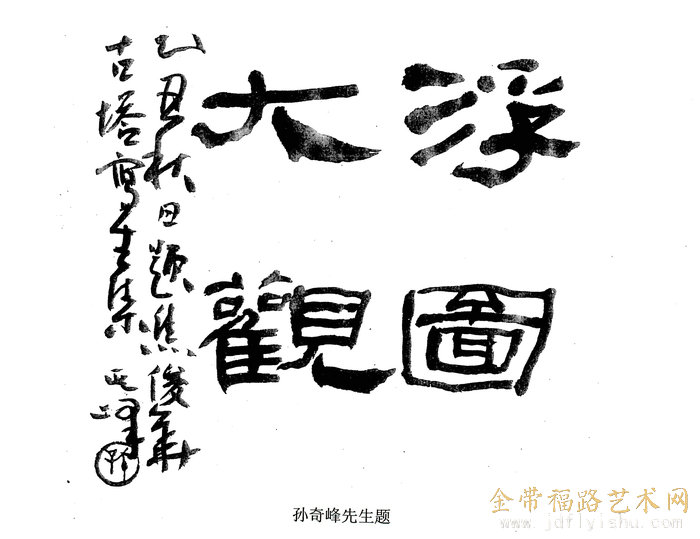 浮圖
大觀
乙丑秋日題焦俊華
古塔寫生集 峰
孙奇峰先生题
金带福路艺术网
www.jdflyishu.com